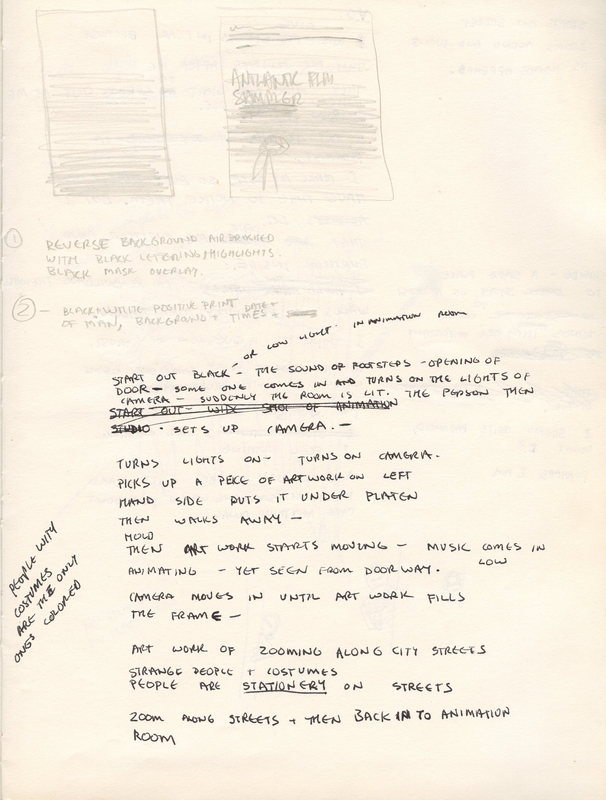 ANTLANTIC FILM
SAMPLER
① REVERSE BACKGROUND AIRBRUSHED
WITH BLACK LETERING/HIGHLIGHTS.
BLACK MASK OVERLAY.
② - BLACK+WHITE POSITIVE PRINT DATE +
OF MAN, BACKGROUND + TIMES +
OR LOW LIGHT. IN ANIMATION ROOM
START OUT BLACK - THE SOUND OF FOOTSTEPS - OPENING OF
DOOR - SOME ONE COMES IN AND TURNS ON THE LIGHTS OF
CAMERA - SUDDENLY THE ROOM IS LIT. THE PERSON THEN
START OUT - WIDE SHOT OF ANIMATION
STUDIO • SETS UP CAMERA. -
TURNS LIGHTS ON - TURNS ON CAMERA.
PICKS UP A PEICE OF ARTWORK ON LEFT
HAND SIDE PUTS IT UNDER PLATEN
THEN WALKS AWAY -
HOLD
THEN ART WORK STARTS MOVING - MUSIC COMES IN
LOW
ANIMATING - YET SEEN FROM DOORWAY.
CAMERA MOVES IN UNTIL ART WORK FILLS
THE FRAME -
PEOPLE WITH
COSTUMES
ARE THE ONLY
ONES COLORED
ART WORK OF ZOOMING ALONG CITY STREETS
STRANGE PEOPLE + COSTUMES
PEOPLE ARE STATIONERY ON STREETS
ZOOM ALONG STREETS + THEN BACK IN TO ANIMATION
ROOM